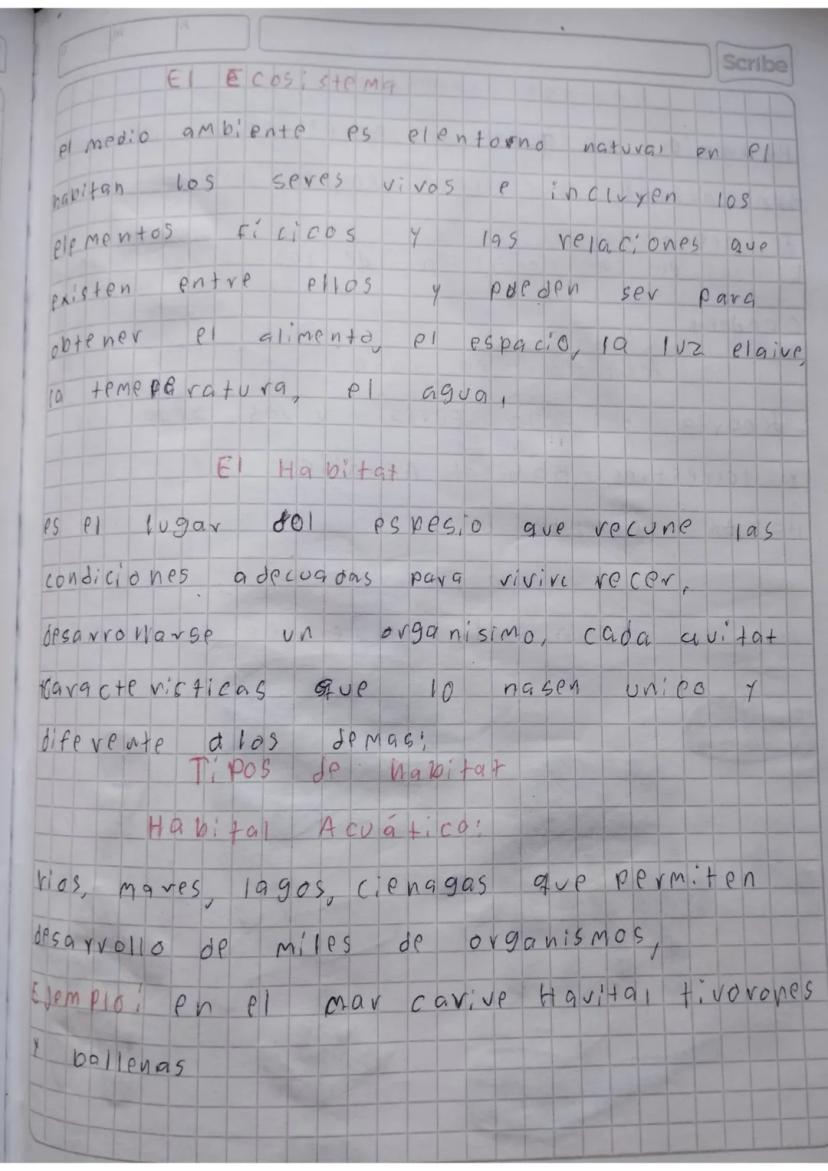 Scribe
El Ecosistema
el medio ambiente es elentorno natural en el
habitan los seres vivos e incluyen los
elementos fícicos y las relaciones que
existen entre ellos y pueden ser para
obtener el alimento, el espacio, la luz elaive,
la temeperatura, el agua,
El Habitat
es el lugar del espesio que recune las
condiciones adecuadas para vivirc recer,
desarrollarse un organisimo, cada avitat
caracteristicas que lo nasen unico y
diferente alos demas;
Tipos de habitat
Habital Acuático:
rios, mares, lagos, cienagas que permiten
desarrollo de miles de organismos,
Ejemplo: en el mar carive Havital tivorones
y ballenas